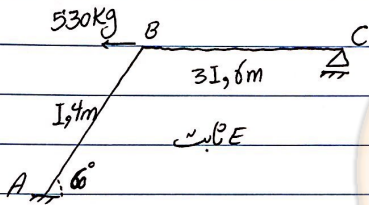 530kg
B
C
3I, 6m
I, 4m
ثابت E
A
60°